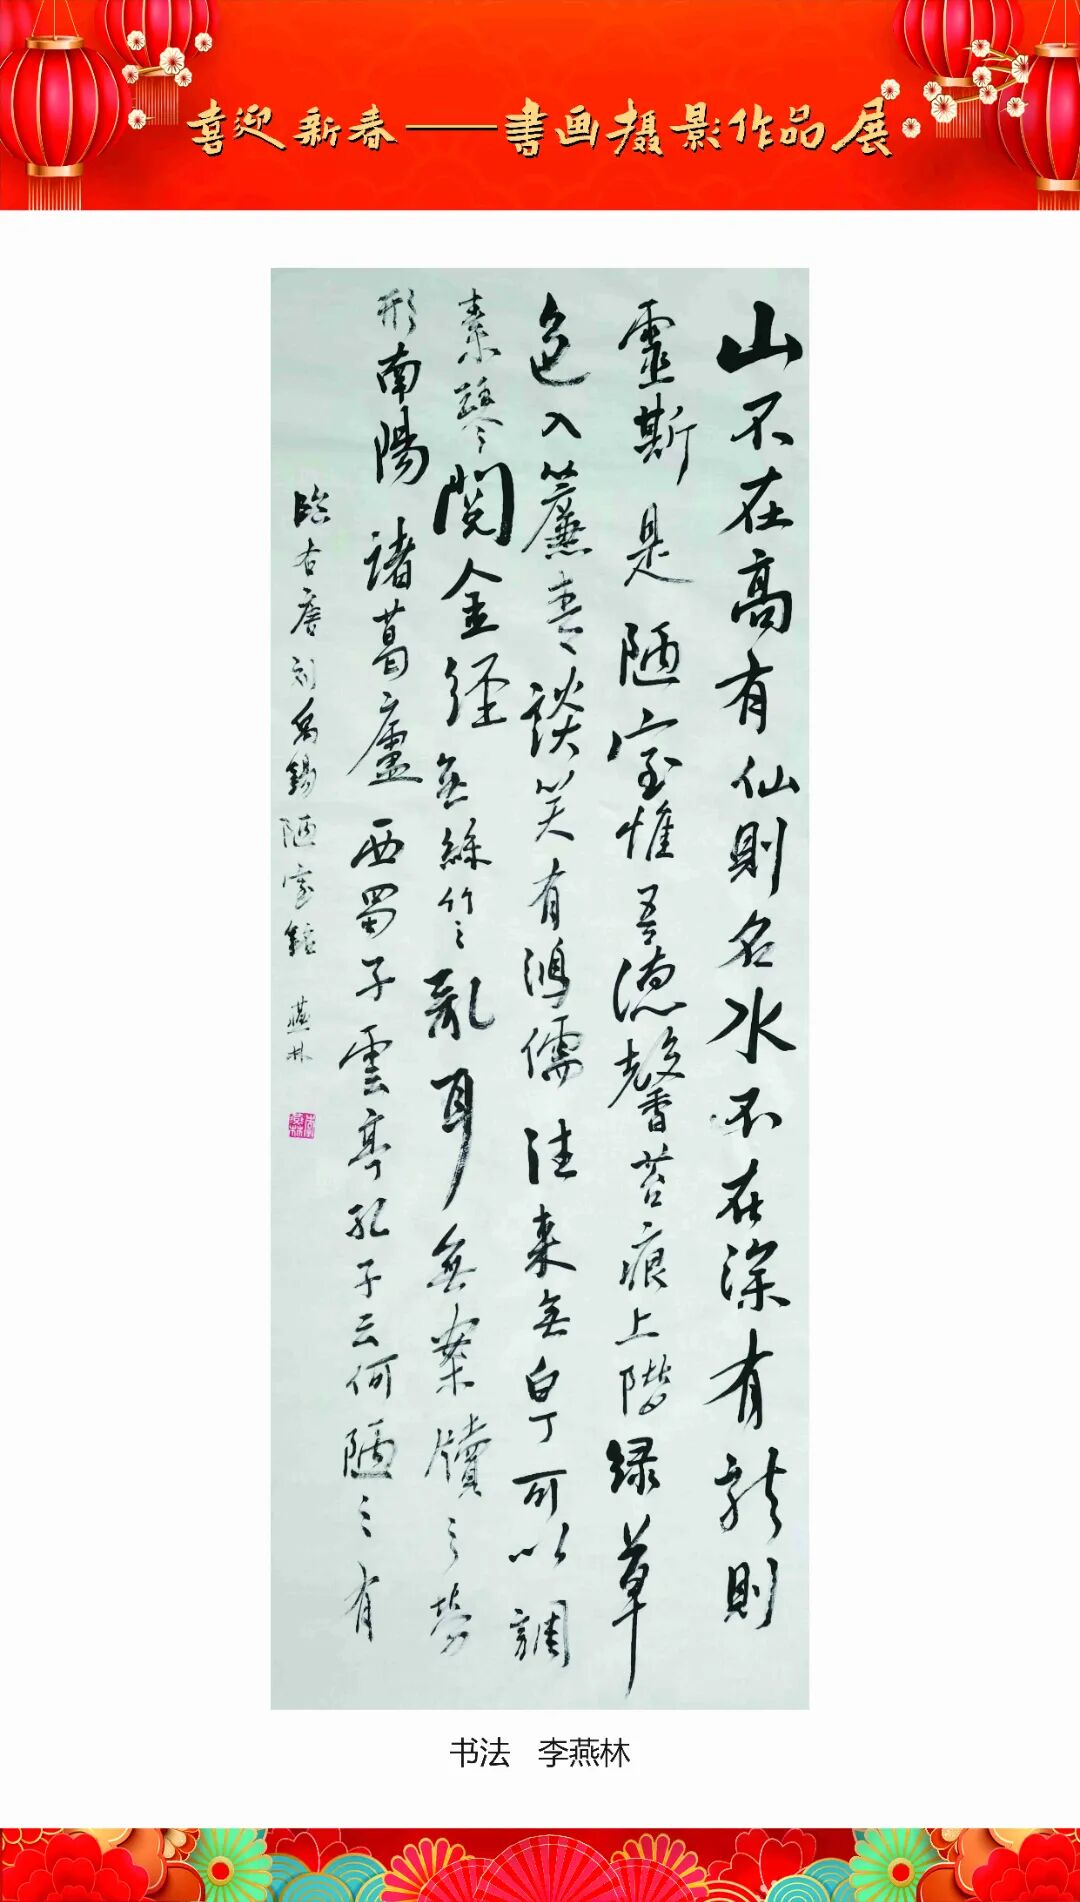 喜迎新春——書画摄影作品展
山不在高有仙則名水不在深有龍則
靈斯是陋室惟吾德馨苔痕上階緑草
色入簾青談笑有鴻儒往來無白丁可以調
素琴閲金經無絲竹之亂耳無案牘之勞
形南陽諸葛廬西蜀子雲亭孔子云何陋之有
臨唐刘禹錫陋室銘 燕林
书法 李燕林